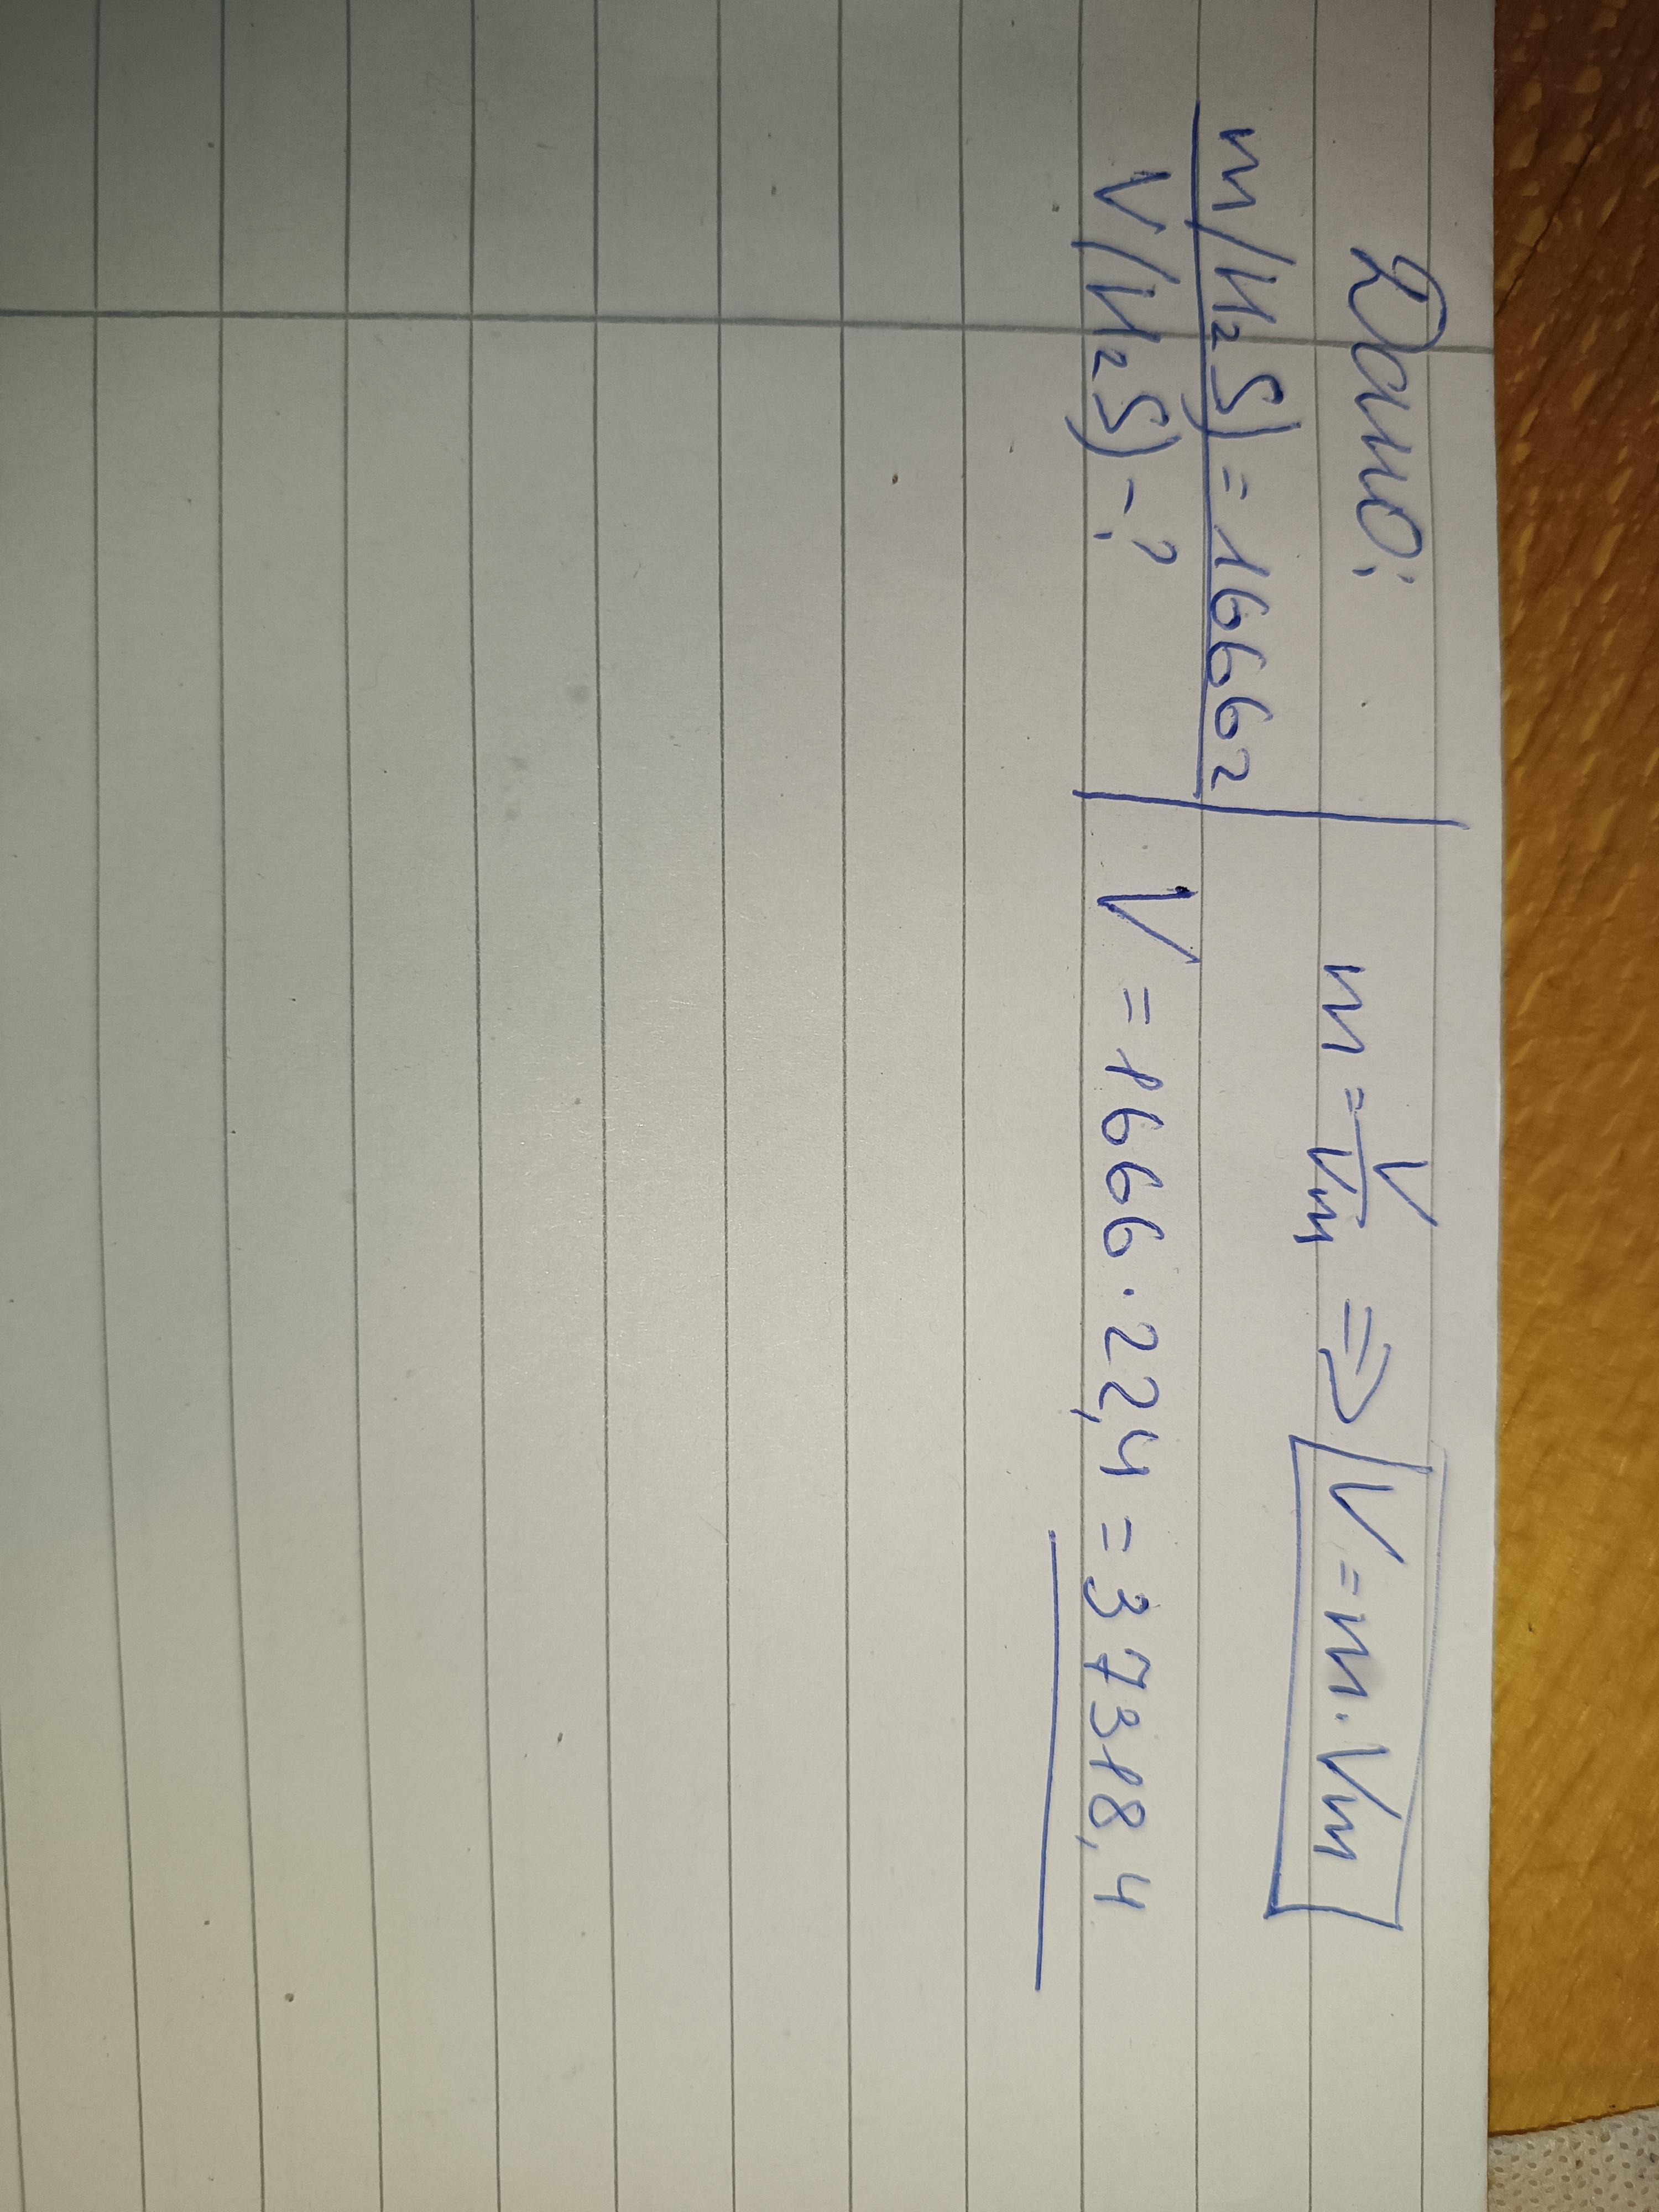 Дано:
m(H₂S) = 1666 г
V(H₂S) - ?
m = V/Vm ⇒ V = m · Vm
V = 1666 · 22,4 = 37318,4